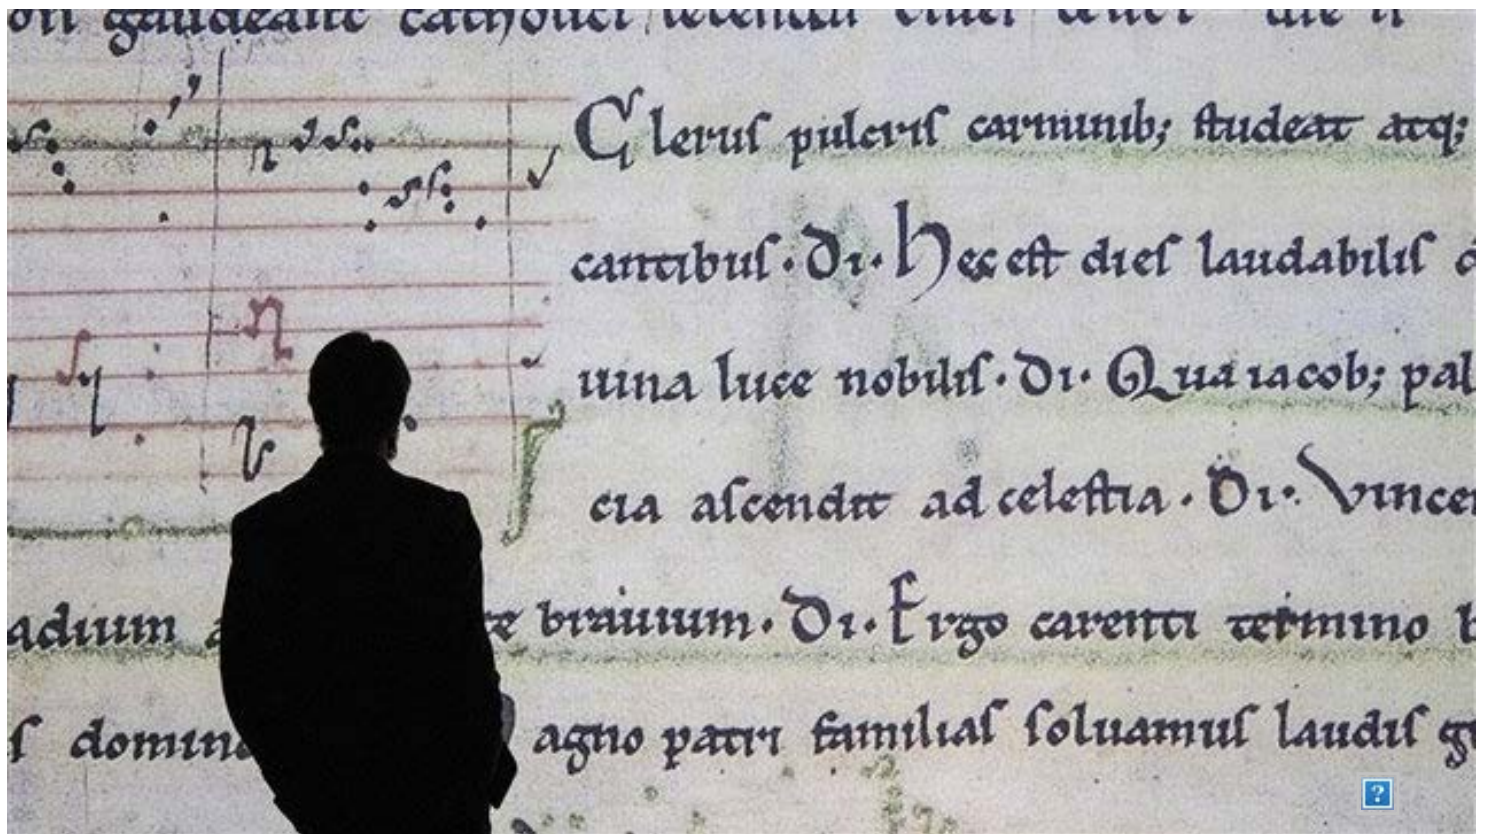 gaudeant catholici letentur cives celici die
Clerus pulcris carminib; studeat atq;
cantibus · Di · Hec est dies laudabilis
iuina luce nobilis · Di · Qua iacob; pal
cia ascendit ad celestia · Di · Vincen
adium re brauium · Di · Ergo carenti termino b
s domino agno patri familias soluamus laudis
?